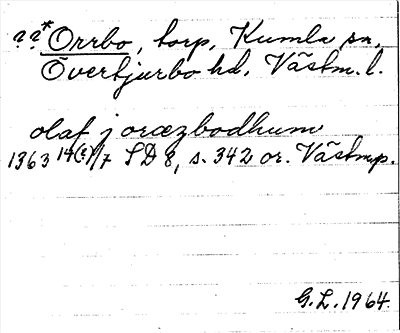 ??*Orrbo, torp, Kumla sn,
Övertjurbo hd, Västm. l.
olaf j oræzbodhum
1363 14(?)/7 SD 8, s. 342 or. Västmp.
G.L. 1964